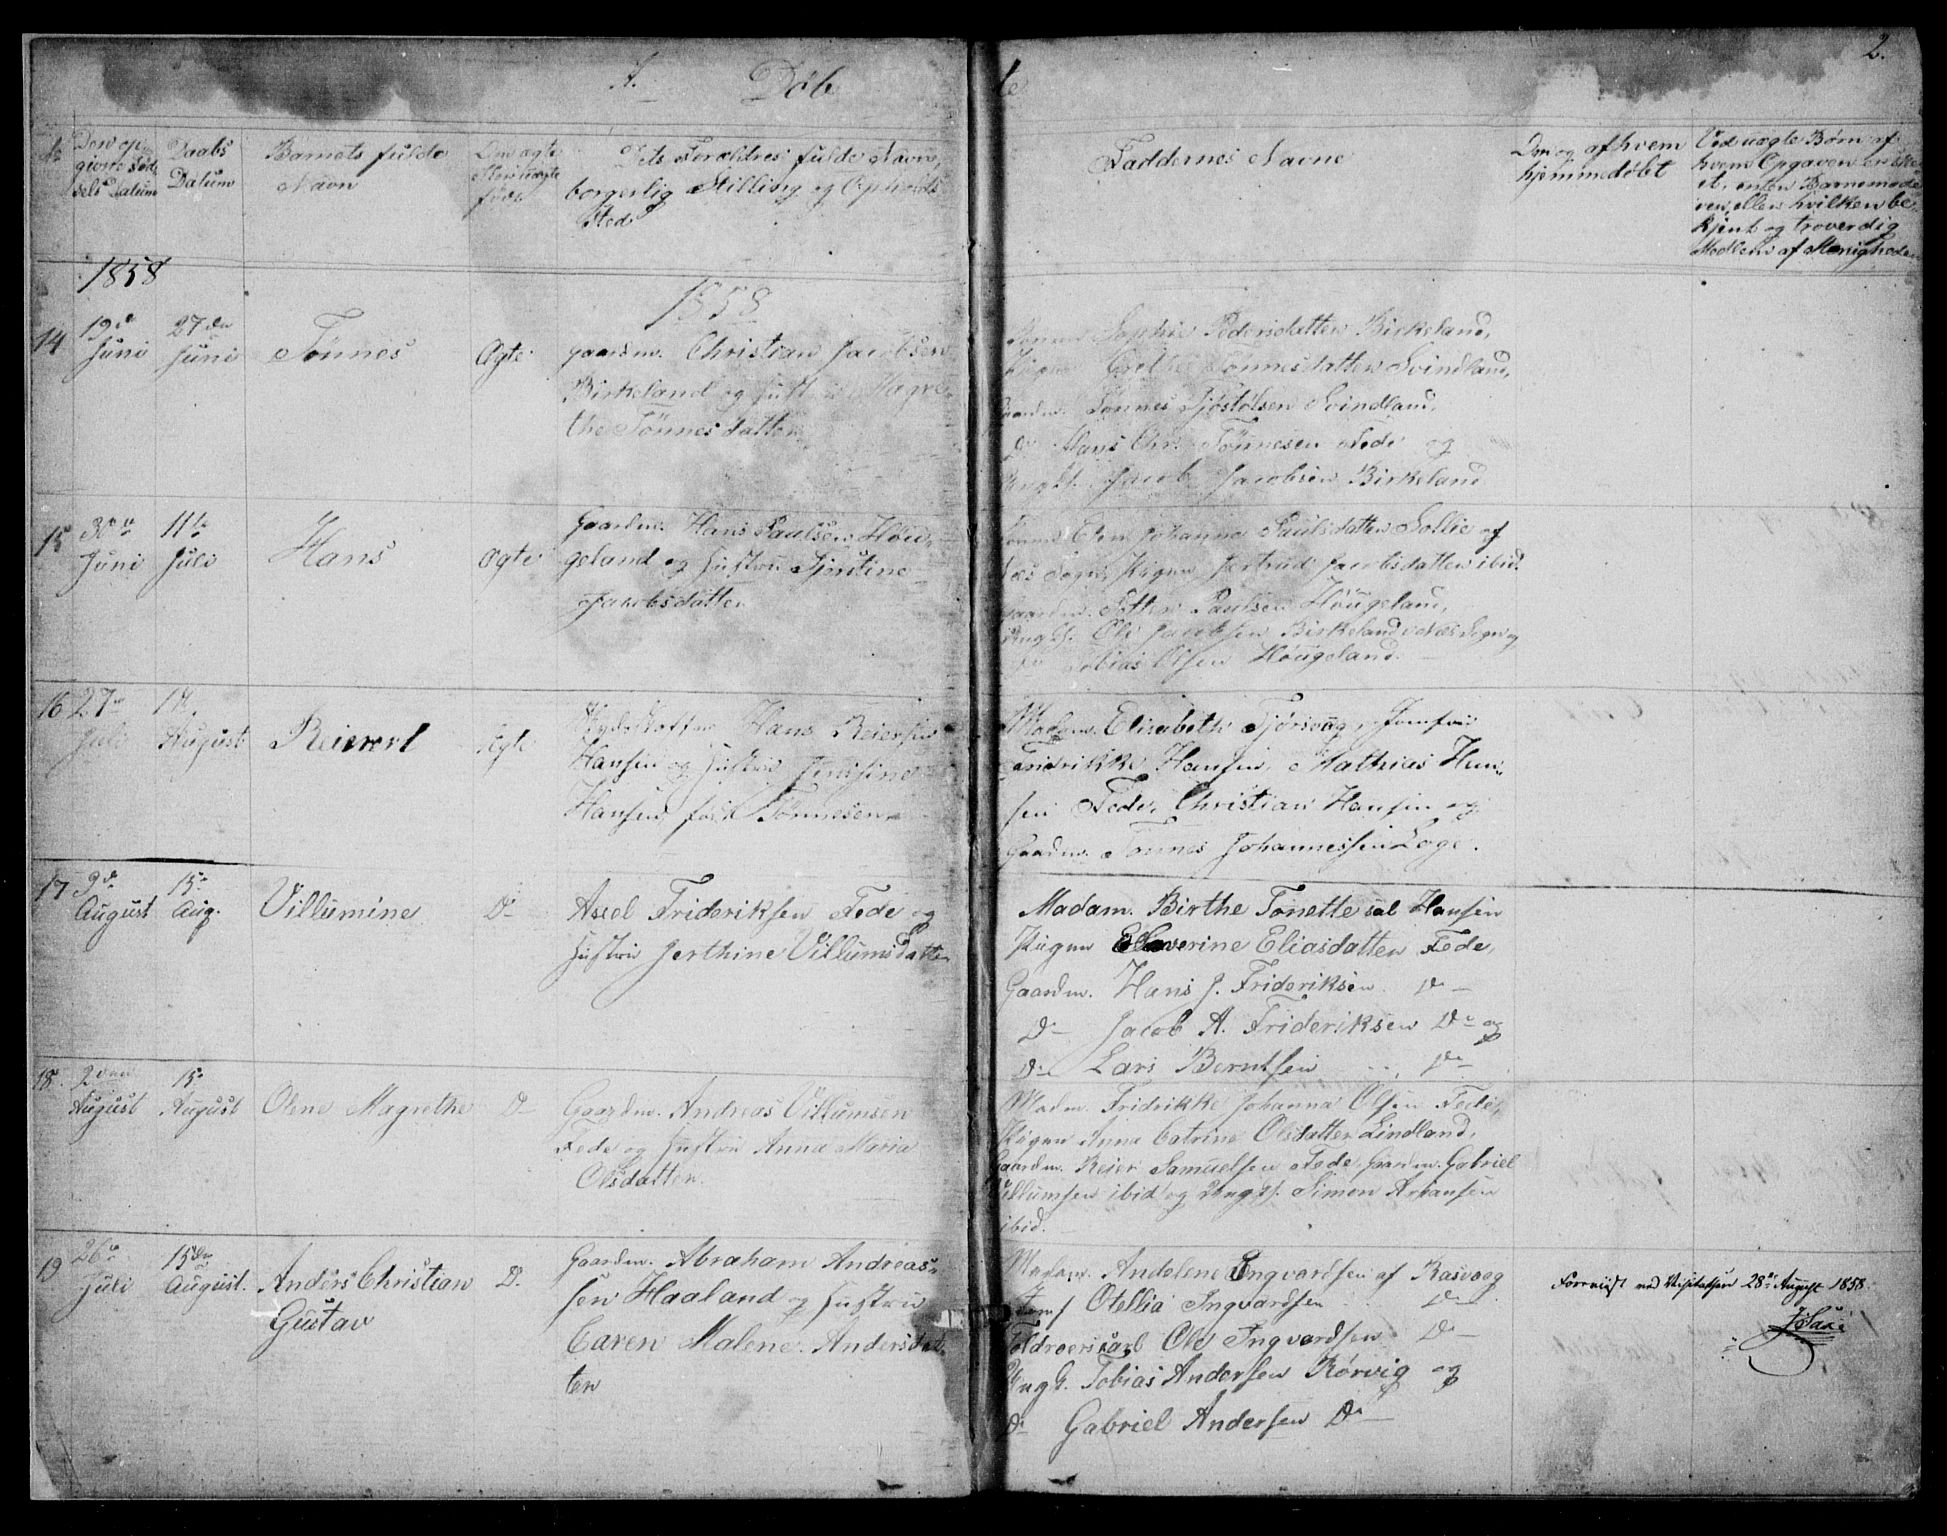 2.
A. Døbte
No
Den opgivne Fødsels Datum
Daabs Datum
Barnets fulde Navn
Om ægte eller uægte født
Dets Forældres fulde Navn, borgerlig Stilling og Opholds Sted
Faddernes Navne
Om og af hvem hjemmedøbt
Ved uægte Børn af hvem Opgaven er
enten Barnemoderen, eller hvilken bekjent og troverdig Medlem af Menigheden
1858
1858
14
19de Juni
27den Juni
Tönnes
Ægte
gaardm. Christian Jacobsen
Birkeland og Hustru Magre-
the Tönnesdatter
Sophie Pedersdatter Birkeland,
Pigen Grethe Tönnesdatter Svindland,
Gaardm. Tønnes Tjøstolsen Svindland,
Do Hans Chr. Tönnesen Fede og
Ungk. Jacob Jacobsen Birkeland
15
30te Juni
11te Juli
Hans
Ægte
Gaardm. Hans Paulsen Höu-
geland og Hustru
Jacobsdatter
Johanna Paulsdatter Sollie af
Næs Sogn, Pigen Jertrud Jacobsdatter ibid.
Gaardm. Paulsen Höugeland,
Ungk. Ole Jacobsen Birkeland i Næs Sogn og
Do Tobias Olsen Höugeland.
16
27de Juli
1ste August
Reinert
Ægte
Hans Reiersen
Hansen og Hustru Jensine
Hansen, föd Tönnesen
Madam Elisabeth Tjörsvaag, Jomfru
Fridrikke Hansen, Mathias Han-
sen Fede, Christian Hansen og
Gaardm. Tönnes Johannessen Loge.
17
3de August
15de Aug.
Villumine
Do
Axel Frideriksen Fede og
Hustru Jerthine Villumsdatter
Madam. Birthe Tonette sal Hansen
Pigen Severine Eliasdatter Fede,
Gaardm. Hans J. Frideriksen Do
Do Jacob A. Frideriksen Do og
Do Lars Berntsen Do
18.
2den August
15de August
Olene Magrethe
Do
Gaardm. Andreas Villumsen
Fede og Hustru Anna Maria
Olsdatter.
Madm. Fridrikke Johanna Olsen Fede,
Pigen Anna Catrine Olsdatter Lindland,
Gaardm. Reier Samuelsen Fede, Gaardm. Gabriel
Villumsen ibid og Ungk. Simon
ibid.
19
26de Juli
15den August.
Anders Christian
Gustav
Do
Gaardm. Abraham Andreas-
sen Haaland og Hustru
Caren Malene Andersdat-
ter
Madam Andelene Ingvardsen af Rasvaag
Jomf Otellia Ingvardsen Do
Toldroerskarl Ole Ingvardsen Do
Ungk. Tobias Andersen Rörvig og
Do Gabriel Andersen Do
Foreviist ved Visitatsen 28de August 1858.